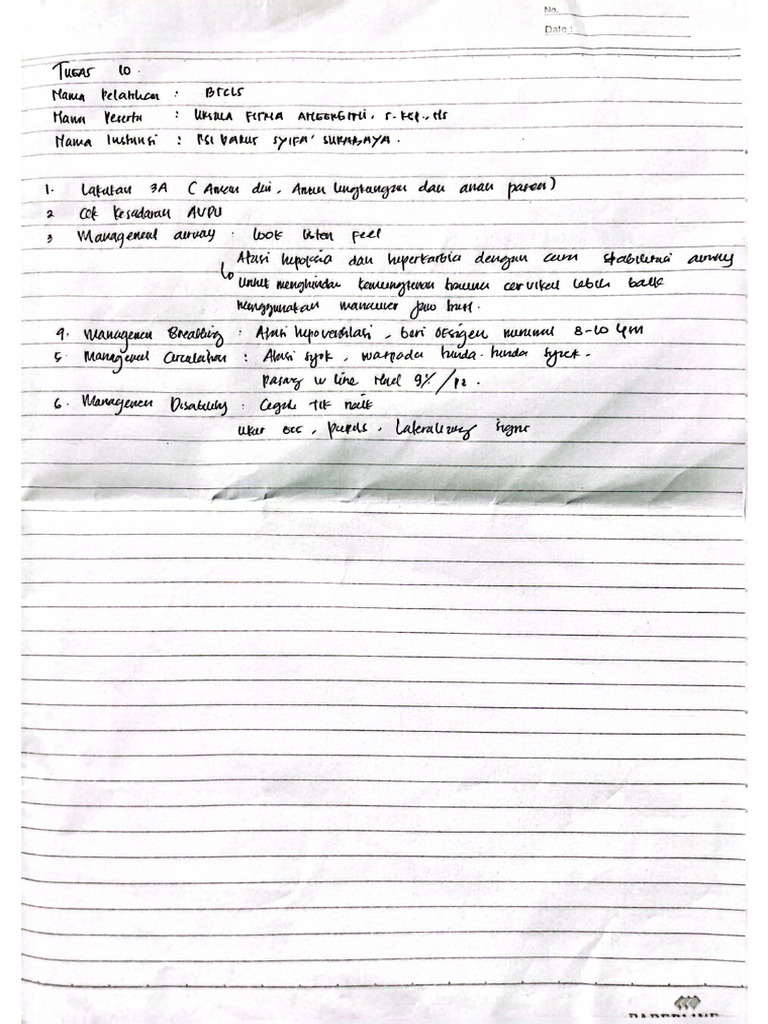 No.
Date :
TUGAS 10.
Nama Pelatihan : BTCLS
Nama Peserta : FITRIA S.Kep., Ns
Nama Instansi : RSI DARUS SYIFA' SURABAYA.
1. Lakukan 3A (Aman diri, Aman lingkungan dan aman pasien)
2 Cek kesadaran AVPU
3 Management airway : Look listen feel
Atasi hipoksia dan hiperkarbia dengan cara stabilisasi airway
Untuk menghindari kemungkinan trauma cervikal lebih baik
menggunakan manuver jaw trust.
4. Managemen Breathing : Atasi hipoventilasi, beri oksigen minimal 8-10 lpm
5. Managemen Circulation : Atasi syok, waspada tanda-tanda syok.
pasang iv line
6. Managemen Disability : Cegah TIK naik
ukur GCS, pupils, Lateralizing signs
PAPERLINE